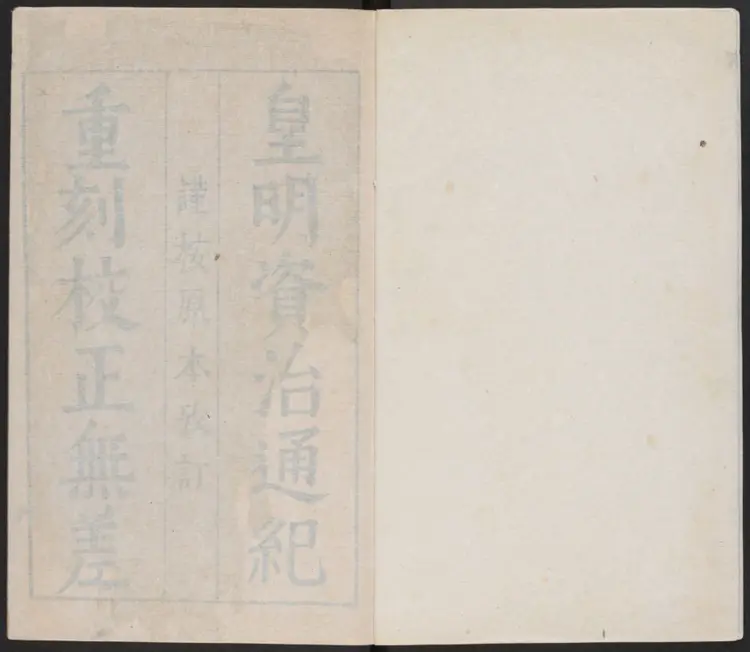 皇明資治通紀
謹按原本攷訂
重刻校正無差